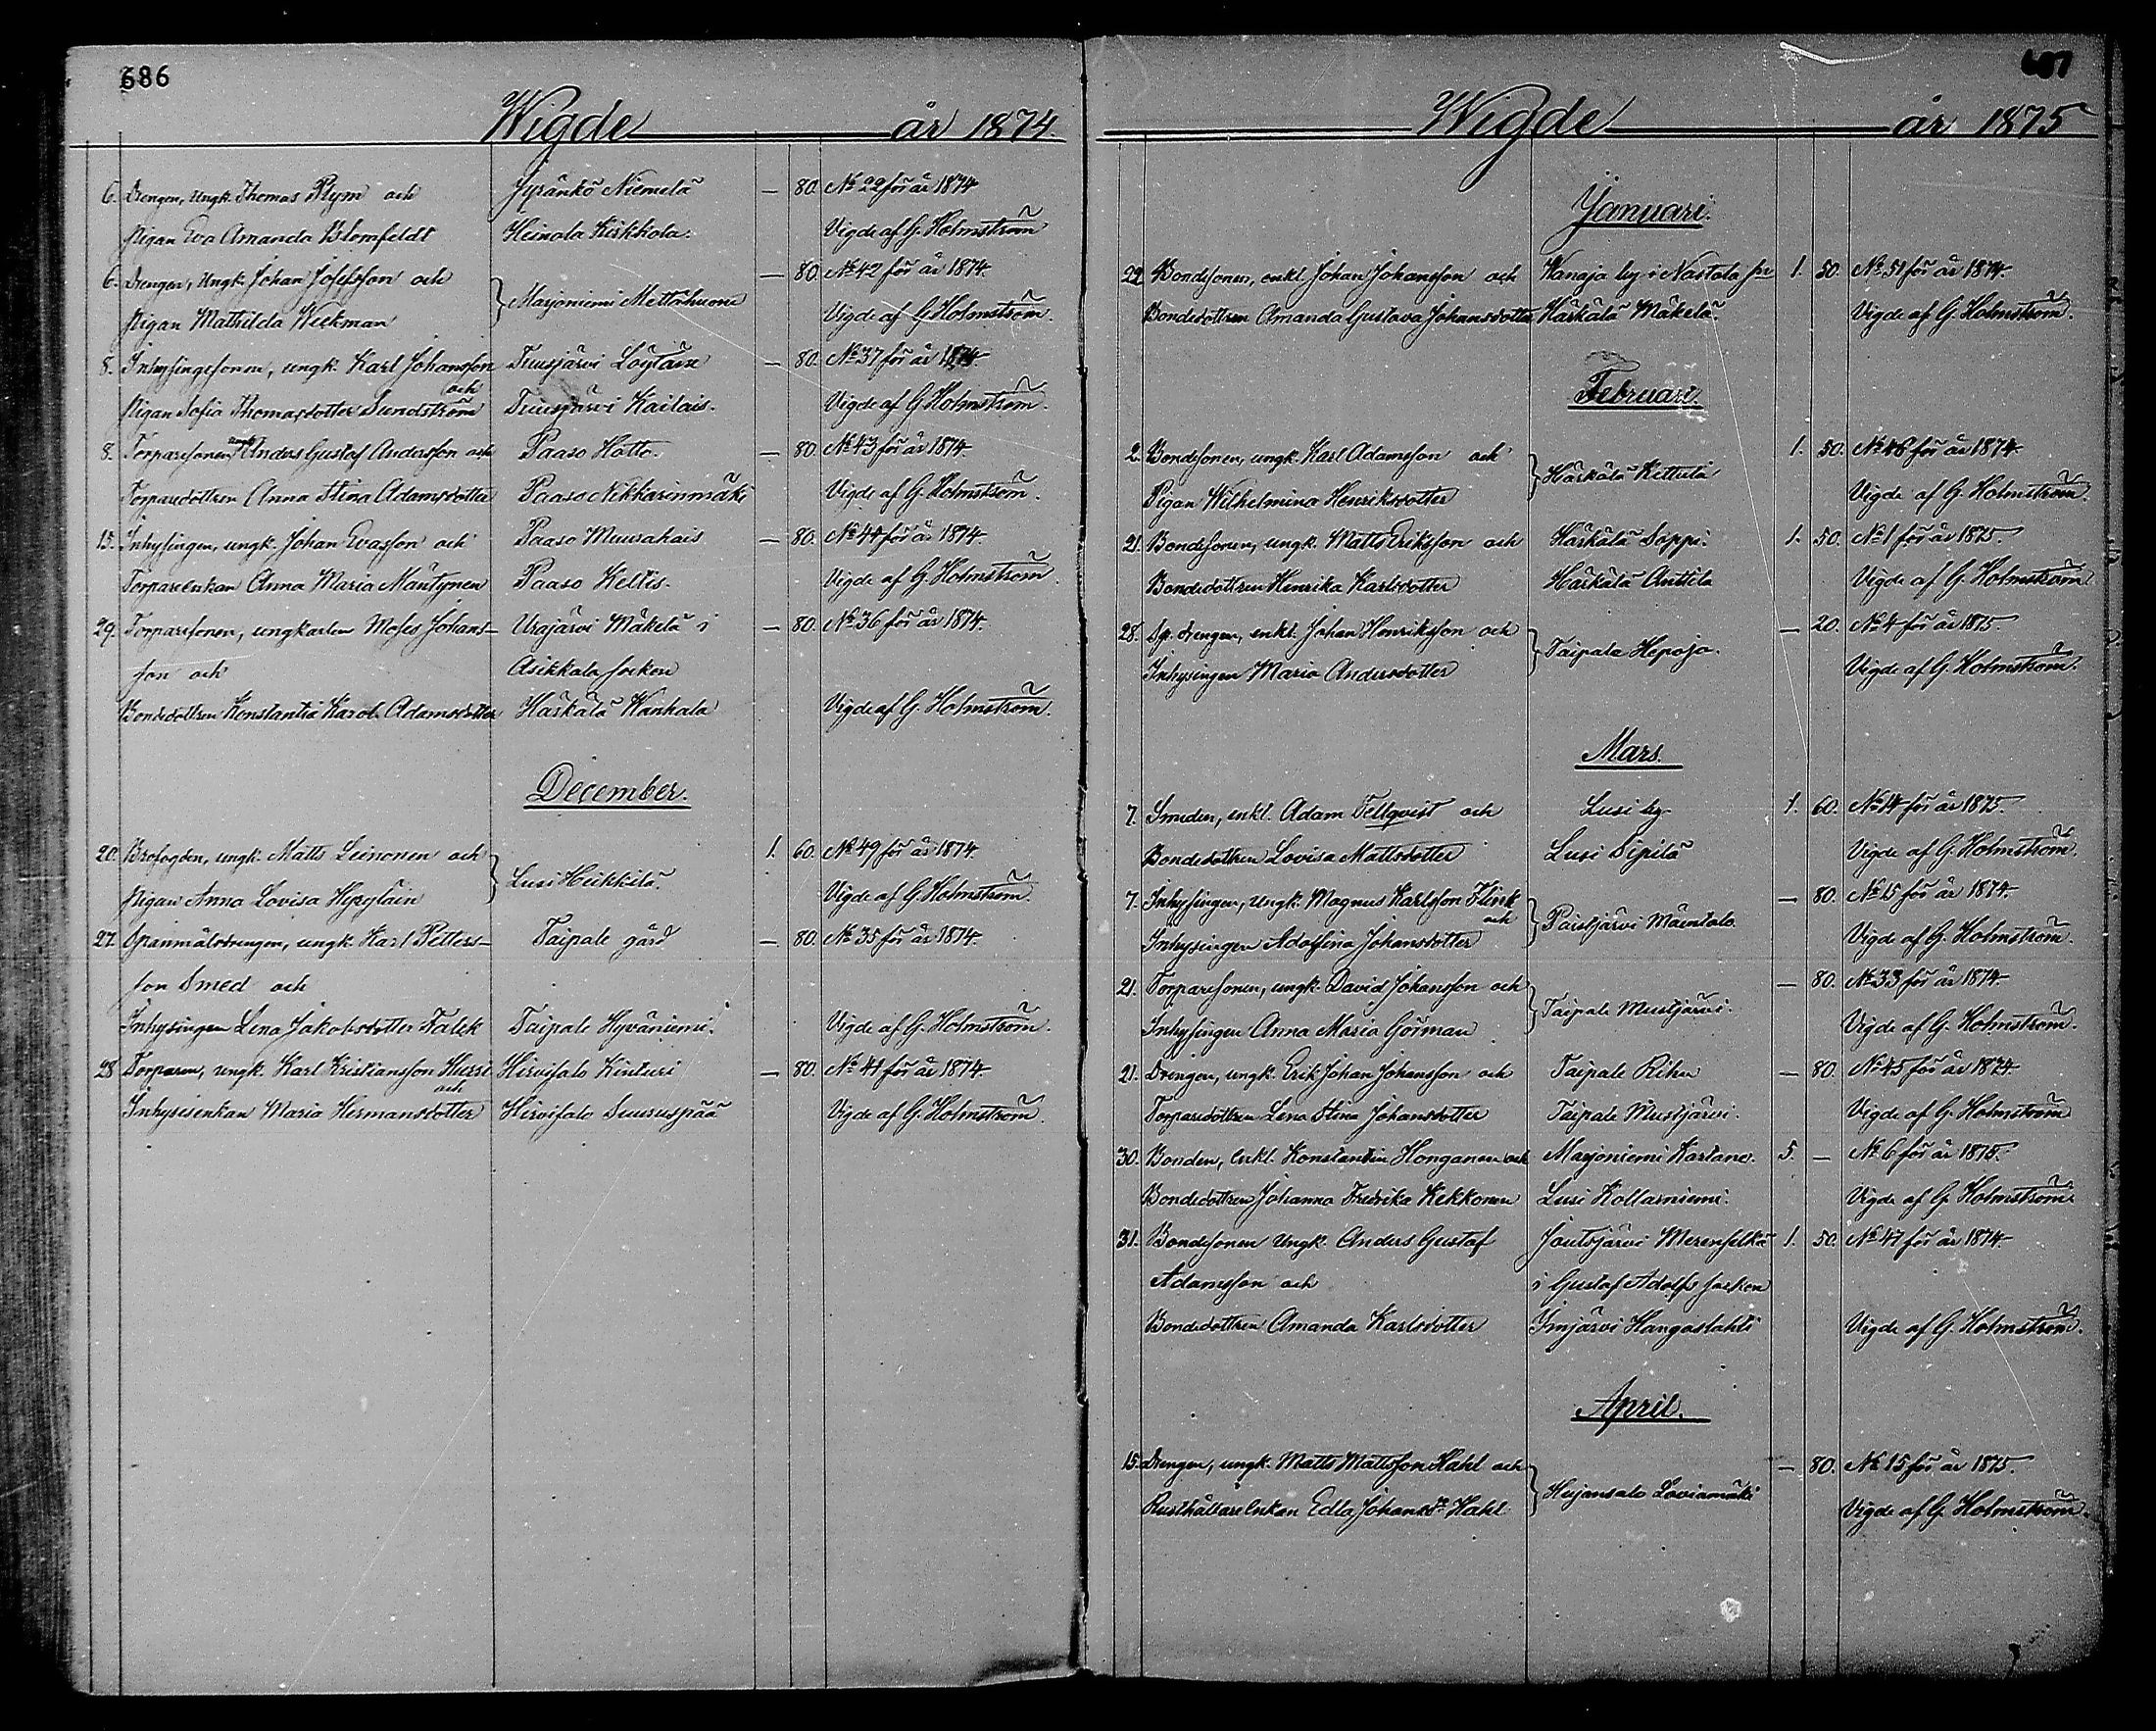 686
Wigde år 1874.
6. Drengen, ungk. Thomas Plym och Jyränkö Niemelä — 80. No 29 för år 1874
Pigan Eva Amanda Blomfeldt Heinola Kirkkola. Vigde af G. Holmström
6. Drengen, Ungk. Johan Josefsson och — 80. No 42 för år 1874.
Pigan Mathilda Weckman Marjoniemi Vigde af G. Holmström.
8. Inhysingesonen, ungk. Karl Johansson Tuusjärvi — 80. No 37 för år 1874.
och
Pigan Sofia Thomasdotter Sundström Tuusjärvi Kailais. Vigde af G. Holmström.
8. Torparesonen, ungk. Anders Gustaf Andersson och Paaso Hotto. — 80 No 43 för år 1874.
Torparedottren Anna Stina Adamsdotter Paaso Nikkarinmäki Vigde af G. Holmström.
15. Inhysingen, ungk. Johan Evasson och Paaso — 80. No 44 för år 1874.
Torpareenkan Anna Maria Mäntynen Paaso Keltis. Vigde af G. Holmström.
29. Torparesonen, ungkarlen Moses Johans- Urajärvi Mäkelä i — 80. No 36 för år 1874.
son och Asikkala socken
Bondedottren Konstantia Karol. Adamsdotter Härkälä Vigde af G. Holmström.
December.
20. Brofogden, ungk. Matts Leinonen och 1. 60. No 49 för år 1874.
Pigan Anna Lovisa Lusi Heikkilä. Vigde af G. Holmström.
27. Spanmålsdrengen, ungk. Karl Petters- Taipale gård — 80. No 35 för år 1874.
son Smed och
Inhysingen Lena Jakobsdotter Falck Taipale Hyväniemi. Vigde af G. Holmström.
28 Torparen, ungk. Karl Kristiansson Hurri Hirvisalo Kinturi — 80. No 41 för år 1874.
och
Inhysisenkan Maria Hermansdotter Hirvisalo Suuruspää Vigde af G. Holmström.
Wigde år 1875
Januari.
22. Bondesonen, enkl. Johan Johansson och Wanaja by i Nastola sn 1. 50. No 51 för år 1874.
Bondedottren Amanda Gustava Johansdotter Härkälä Mäkelä. Vigde af G. Holmström.
Februari.
2. Bondesonen, ungk. Karl Adamsson och 1. 50. No 48 för år 1874.
Pigan Wilhelmina Henriksdotter Härkälä Kettula Vigde af G. Holmström.
21. Bondesonen, ungk. Matts Eriksson och Härkälä Soppi. 1. 50. No 1 för år 1875.
Bondedottren Henrika Karlsdotter Härkälä Anttila Vigde af G. Holmström.
28. Sp. drengen, enkl. Johan Henriksson och — 20. No 4 för år 1875.
Inhysingen Maria Andersdotter Taipale Hepoja. Vigde af G. Holmström.
Mars.
7. Smeden, enkl. Adam Tellqvist och Lusi by 1. 60. No 14 för år 1875.
Bondedottren Lovisa Mattsdotter Lusi Sipilä Vigde af G. Holmström.
7. Inhysingen, ungk. Magnus Karlsson Flink — 80. No 15 för år 1874.
och
Inhysingen Adolfina Johansdotter Paistjärvi Mäentalo Vigde af G. Holmström.
21. Torparesonen, ungk. David Johansson och — 80. No 33 för år 1874.
Inhysingen Anna Maria Görman Taipale Mustjärvi. Vigde af G. Holmström.
21. Drengen, ungk. Erik Johan Johansson och Taipale — 80. No 45 för år 1874.
Torparedottren Lena Stina Johansdotter Taipale Mustjärvi. Vigde af G. Holmström
30. Bonden, enkl. Konstantin Honganen och Marjoniemi Kartano. 5. — No 6 för år 1875.
Bondedottren Johanna Fredrika Kekkonen Lusi Kollarniemi. Vigde af G. Holmström.
31. Bondesonen Ungk. Anders Gustaf Joutsjärvi Merenselkä 1. 50. No 47 för år 1874.
Adamsson och i Gustaf Adolfs socken
Bondedottren Amanda Karlsdotter Imjärvi Hangaslahti Vigde af G. Holmström.
April.
15. Drengen, ungk. Matts Mattsson Hahl och — 80. No 15 för år 1875.
Rusthållareenkan Edla Johansdr Hahl Kujansalo Vigde af G. Holmström.